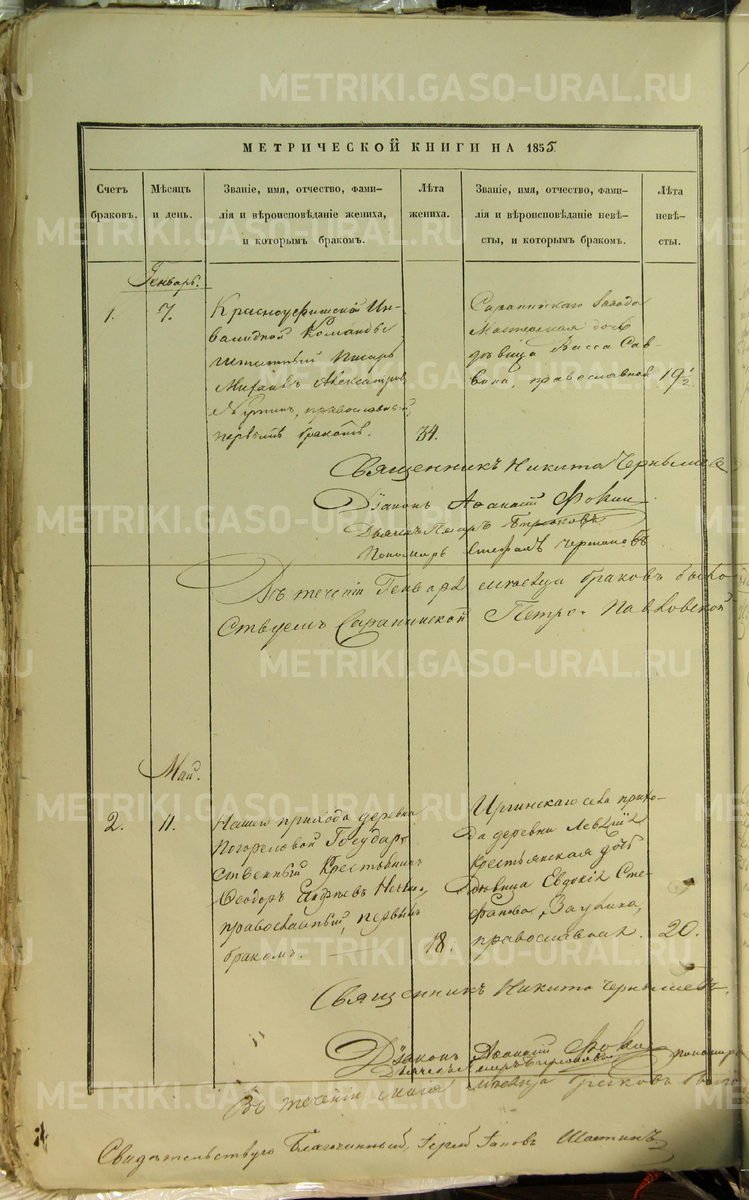 МЕТРИЧЕСКОЙ КНИГИ НА 1855.
Счетъ браковъ.
Мѣсяцъ и день.
Званіе, имя, отчество, фами-
лія и вѣроисповѣданіе жениха,
и которымъ бракомъ.
Лѣта жениха.
Званіе, имя, отчество, фами-
лія и вѣроисповѣданіе невѣ-
сты, и которымъ бракомъ.
Лѣта невѣ-
сты.
Генварь.
1.
7.
Красноуфимской Ин-
валидной Команды
Писарь
Михаилъ Александровъ
православный,
первымъ бракомъ.
34.
Саранинскаго завода
Мастерская дочь
дѣвица Васса Сав-
вина, православной
19½
Священникъ Никита Чернышевъ
Діаконъ Афанасій Фокин
Дьячекъ Петръ
Пономарь Стефанъ
Въ теченіи Генваря месяца браковъ было
Ствуемъ Саранинской Петро-Павловской
Май.
2.
11.
Нашего прихода деревни
Погореловой Государ-
ственный Крестьянинъ
Феодоръ Андреевъ
православный, первымъ
бракомъ.
18.
Иргинскаго села прихо-
да деревни
Крестьянская дочь
Дѣвица Евдокія Сте-
фанова,
православная.
20.
Священникъ Никита Чернышевъ.
Діаконъ Афанасій Фокин
Дьячекъ
пономарь
Въ теченіи мая месяца браковъ было
Свидѣтельствую Благочинный, Іерей Іаковъ
METRIKI.GASO-URAL.RU